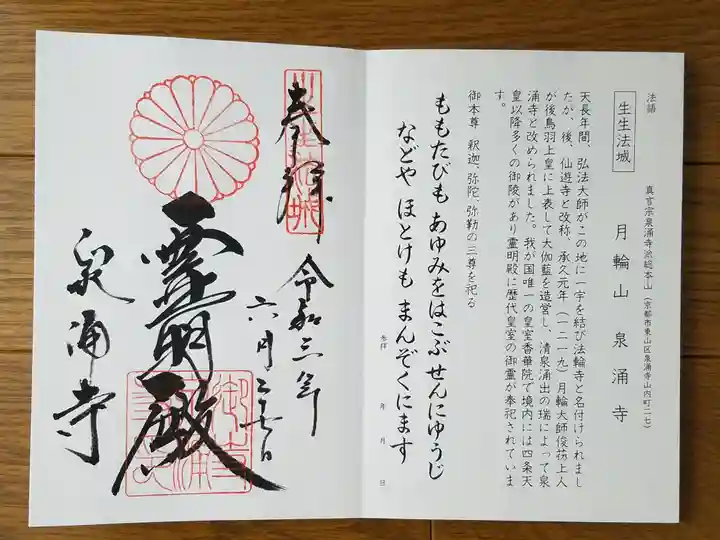 法語
生生法城
真言宗泉涌寺派総本山(京都市東山区泉涌寺山内町二七)
月輪山 泉涌寺
天長年間、弘法大師がこの地に一宇を結び法輪寺と名付けられまし
たが、後、仙遊寺と改称、承久元年(一二一九)月輪大師俊芿上人
が後鳥羽上皇に上表して大伽藍を造営し、清泉涌出の瑞によって泉
涌寺と改められました。我が国唯一の皇室香華院で境内には四条天
皇以降多くの御陵があり霊明殿に歴代皇室の御霊が奉祀されていま
す。
御本尊 釈迦、弥陀、弥勒の三尊を祀る
ももたびも あゆみをはこぶせんにゆうじ
などや ほとけも まんぞくにます
参拝 年 月 日
奉拝
令和三年
六月二十七日
霊明殿
泉涌寺